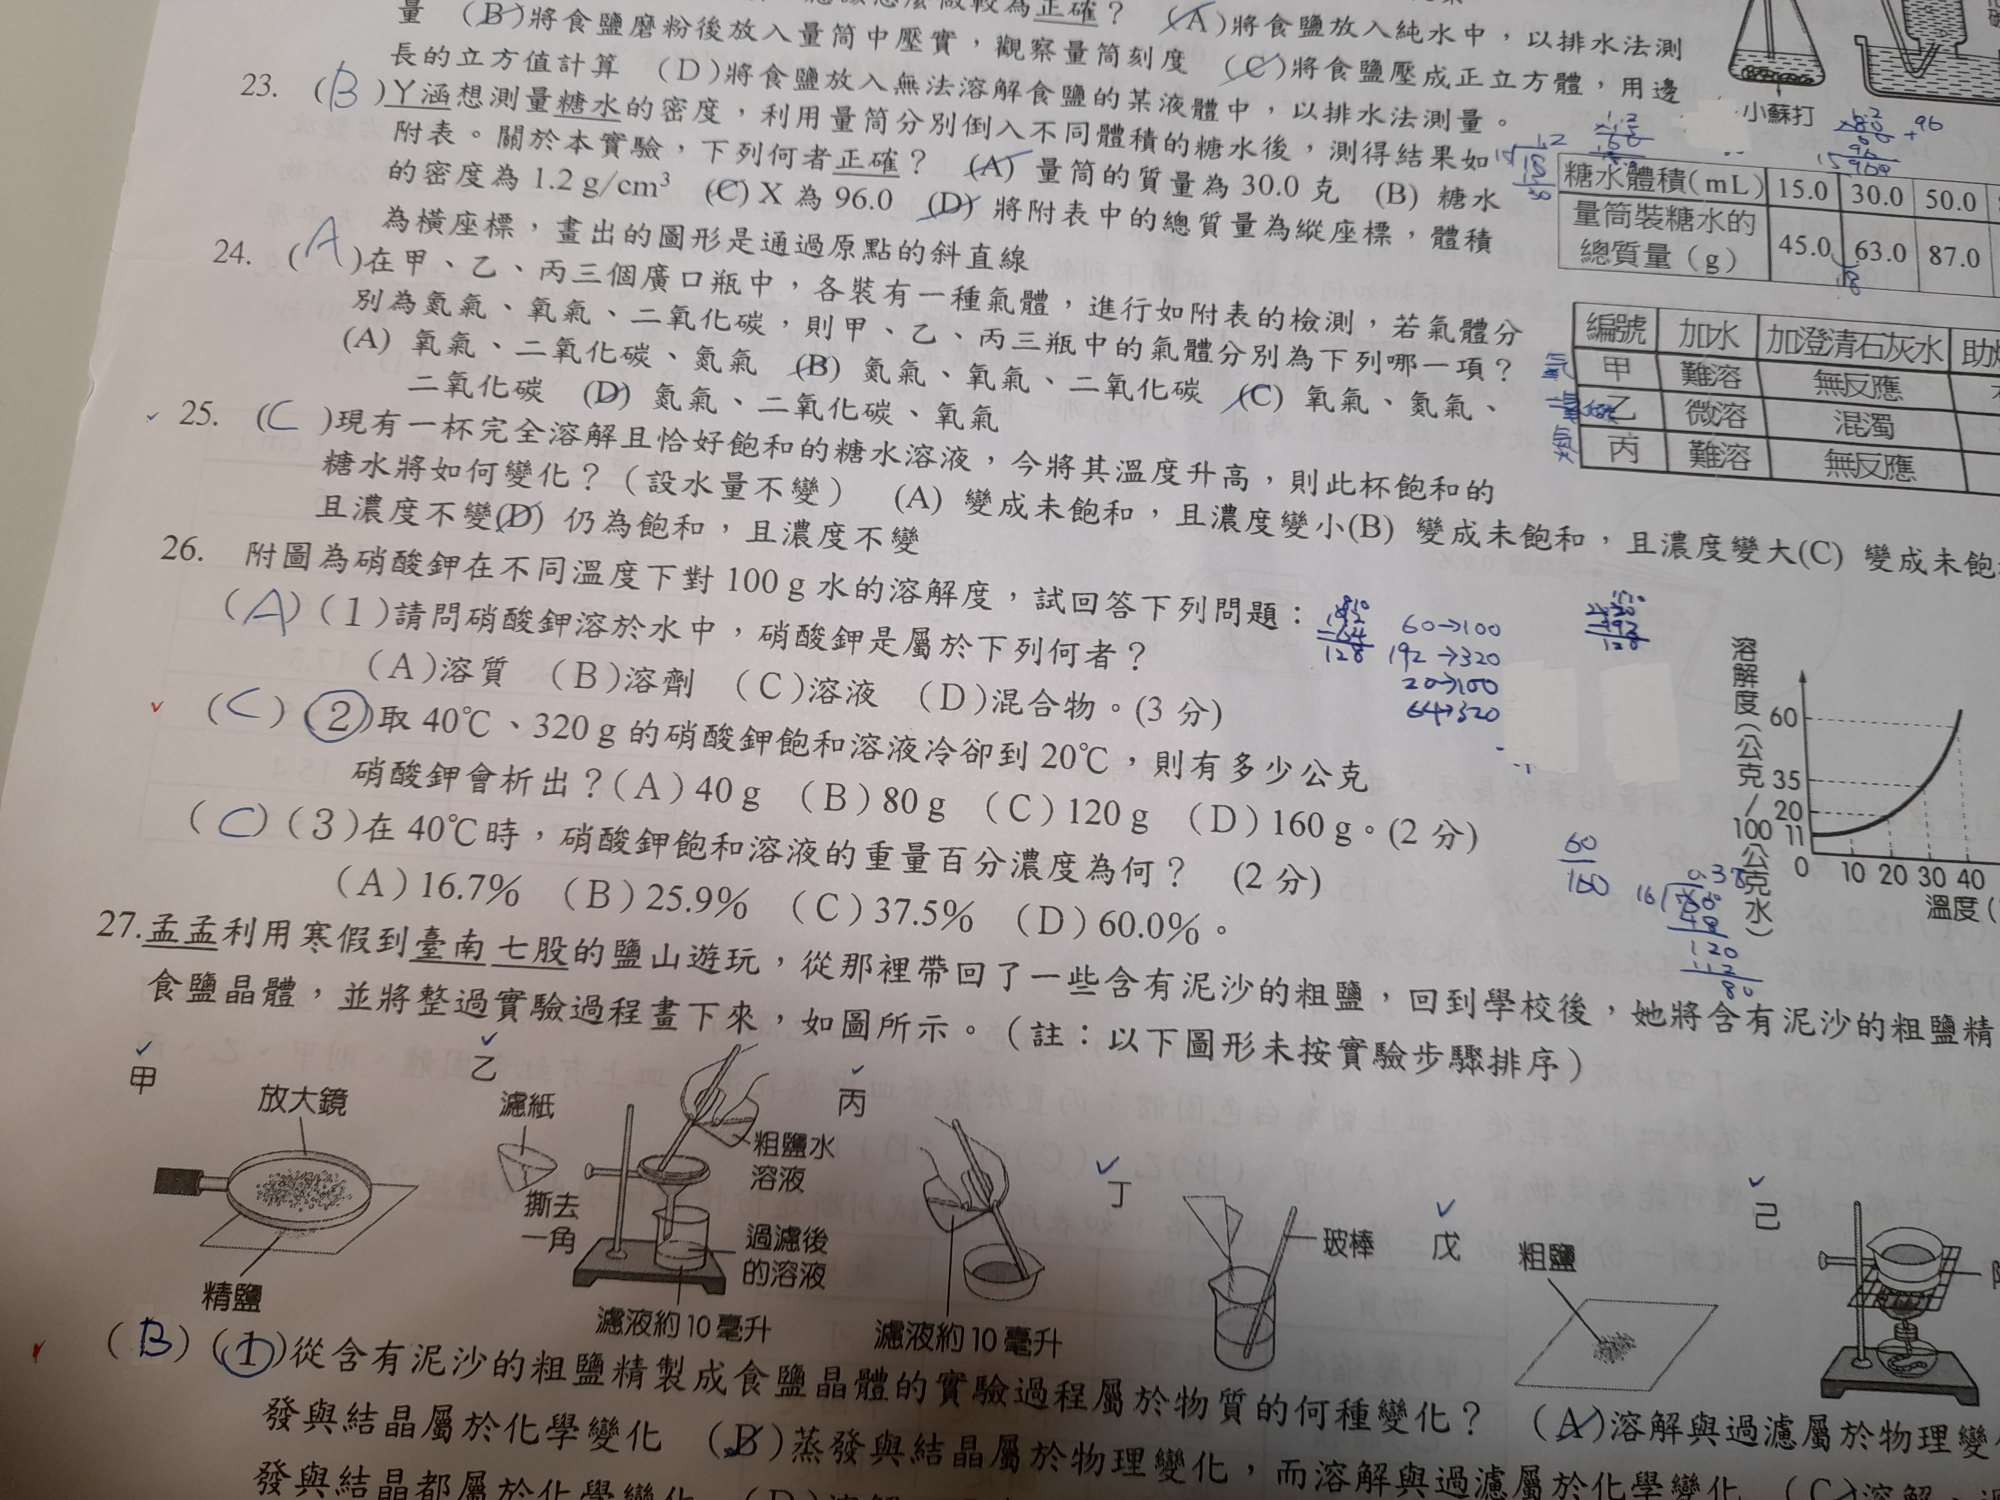 量 (B)將食鹽磨粉後放入量筒中壓實，觀察量筒刻度 (A)將食鹽放入純水中，以排水法測
正確？
長的立方值計算 (D)將食鹽放入無法溶解食鹽的某液體中，以排水法測量。 (C)將食鹽壓成正立方體，用邊
小蘇打
23. (B)丫涵想測量糖水的密度，利用量筒分別倒入不同體積的糖水後，測得結果如
附表。關於本實驗，下列何者正確？ (A) 量筒的質量為 30.0 克 (B) 糖水
的密度為 1.2 g/cm³ (C) X 為 96.0 (D) 將附表中的總質量為縱座標，體積
為橫座標，畫出的圖形是通過原點的斜直線
糖水體積(mL) 15.0 30.0 50.0
量筒裝糖水的總質量(g) 45.0 63.0 87.0
24. (A)在甲、乙、丙三個廣口瓶中，各裝有一種氣體，進行如附表的檢測，若氣體分
別為氮氣、氧氣、二氧化碳，則甲、乙、丙三瓶中的氣體分別為下列哪一項？
(A) 氧氣、二氧化碳、氮氣 (B) 氮氣、氧氣、二氧化碳 (C) 氧氣、氮氣、
二氧化碳 (D) 氮氣、二氧化碳、氧氣
編號 加水 加澄清石灰水
甲 難溶 無反應
乙 微溶 混濁
丙 難溶 無反應
25. (C)現有一杯完全溶解且恰好飽和的糖水溶液，今將其溫度升高，則此杯飽和的
糖水將如何變化？（設水量不變） (A) 變成未飽和，且濃度變小(B) 變成未飽和，且濃度變大(C) 變成未飽
且濃度不變(D) 仍為飽和，且濃度不變
26. 附圖為硝酸鉀在不同溫度下對 100 g 水的溶解度，試回答下列問題：
(A)(1)請問硝酸鉀溶於水中，硝酸鉀是屬於下列何者？
(A)溶質 (B)溶劑 (C)溶液 (D)混合物。(3 分)
(C)(2)取 40℃、320 g 的硝酸鉀飽和溶液冷卻到 20℃，則有多少公克
硝酸鉀會析出？(A) 40 g (B) 80 g (C) 120 g (D) 160 g。(2 分)
(C)(3)在 40℃時，硝酸鉀飽和溶液的重量百分濃度為何？ (2 分)
(A) 16.7% (B) 25.9% (C) 37.5% (D) 60.0%。
60→100
192→320
20→100
64→320
128
溶解度（公克/100公克水）
60
35
20
11
0 10 20 30 40
溫度(
60
160
27.孟孟利用寒假到臺南七股的鹽山遊玩，從那裡帶回了一些含有泥沙的粗鹽，回到學校後，她將含有泥沙的粗鹽精
食鹽晶體，並將整過實驗過程畫下來，如圖所示。（註：以下圖形未按實驗步驟排序）
甲
放大鏡
精鹽
乙
濾紙
撕去一角
粗鹽水溶液
過濾後的溶液
濾液約10毫升
丙
濾液約10毫升
丁
玻棒
戊
粗鹽
己
(B)(1)從含有泥沙的粗鹽精製成食鹽晶體的實驗過程屬於物質的何種變化？ (A)溶解與過濾屬於物理變
發與結晶屬於化學變化 (B)蒸發與結晶屬於物理變化，而溶解與過濾屬於化學變化 (C)溶解、過
發與結晶都屬於化學變化 (D)溶解